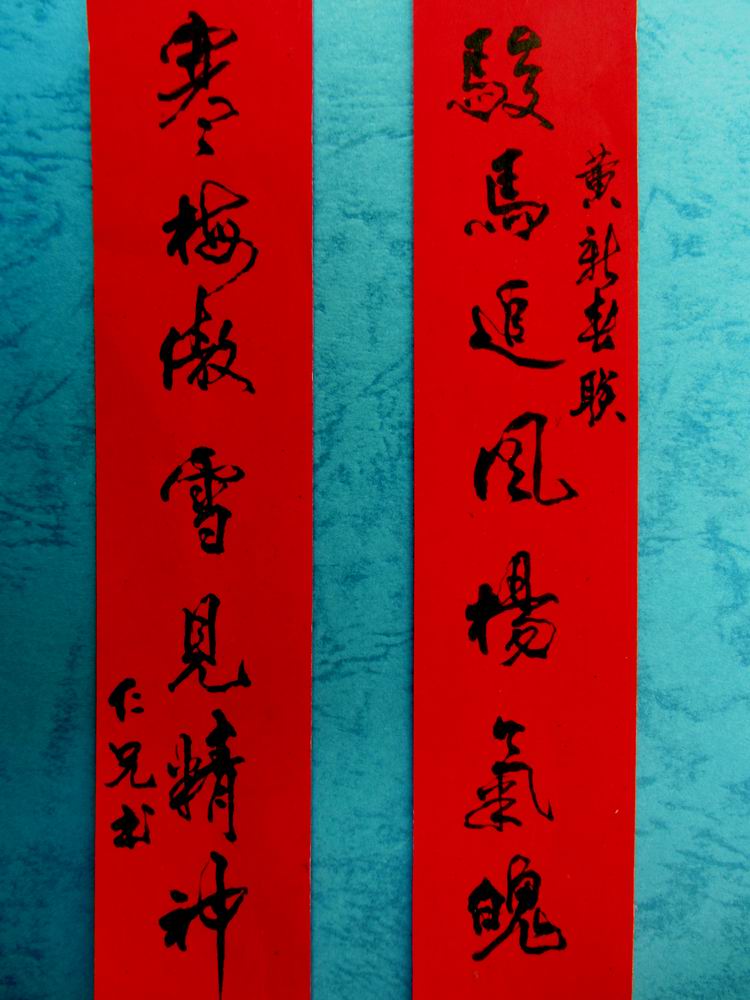 駿馬追風楊氣魄
黄新春联
寒梅傲雪見精神
仁兄书